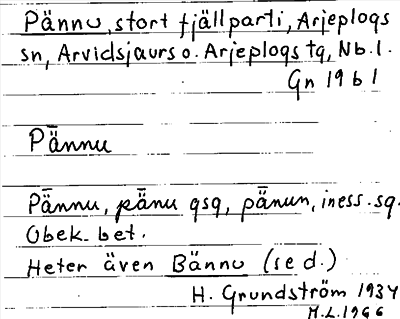 Pännu, stort fjällparti, Arjeplogs
sn, Arvidsjaurs o. Arjeplogs tg, Nb. l.
Gn 1961
Pännu
Pǟnnu, pǟnu gsg, pǟnun, iness. sg.
Obek. bet.
Heter även Bännu (se d.)
H. Grundström 1934
H.L. 1966